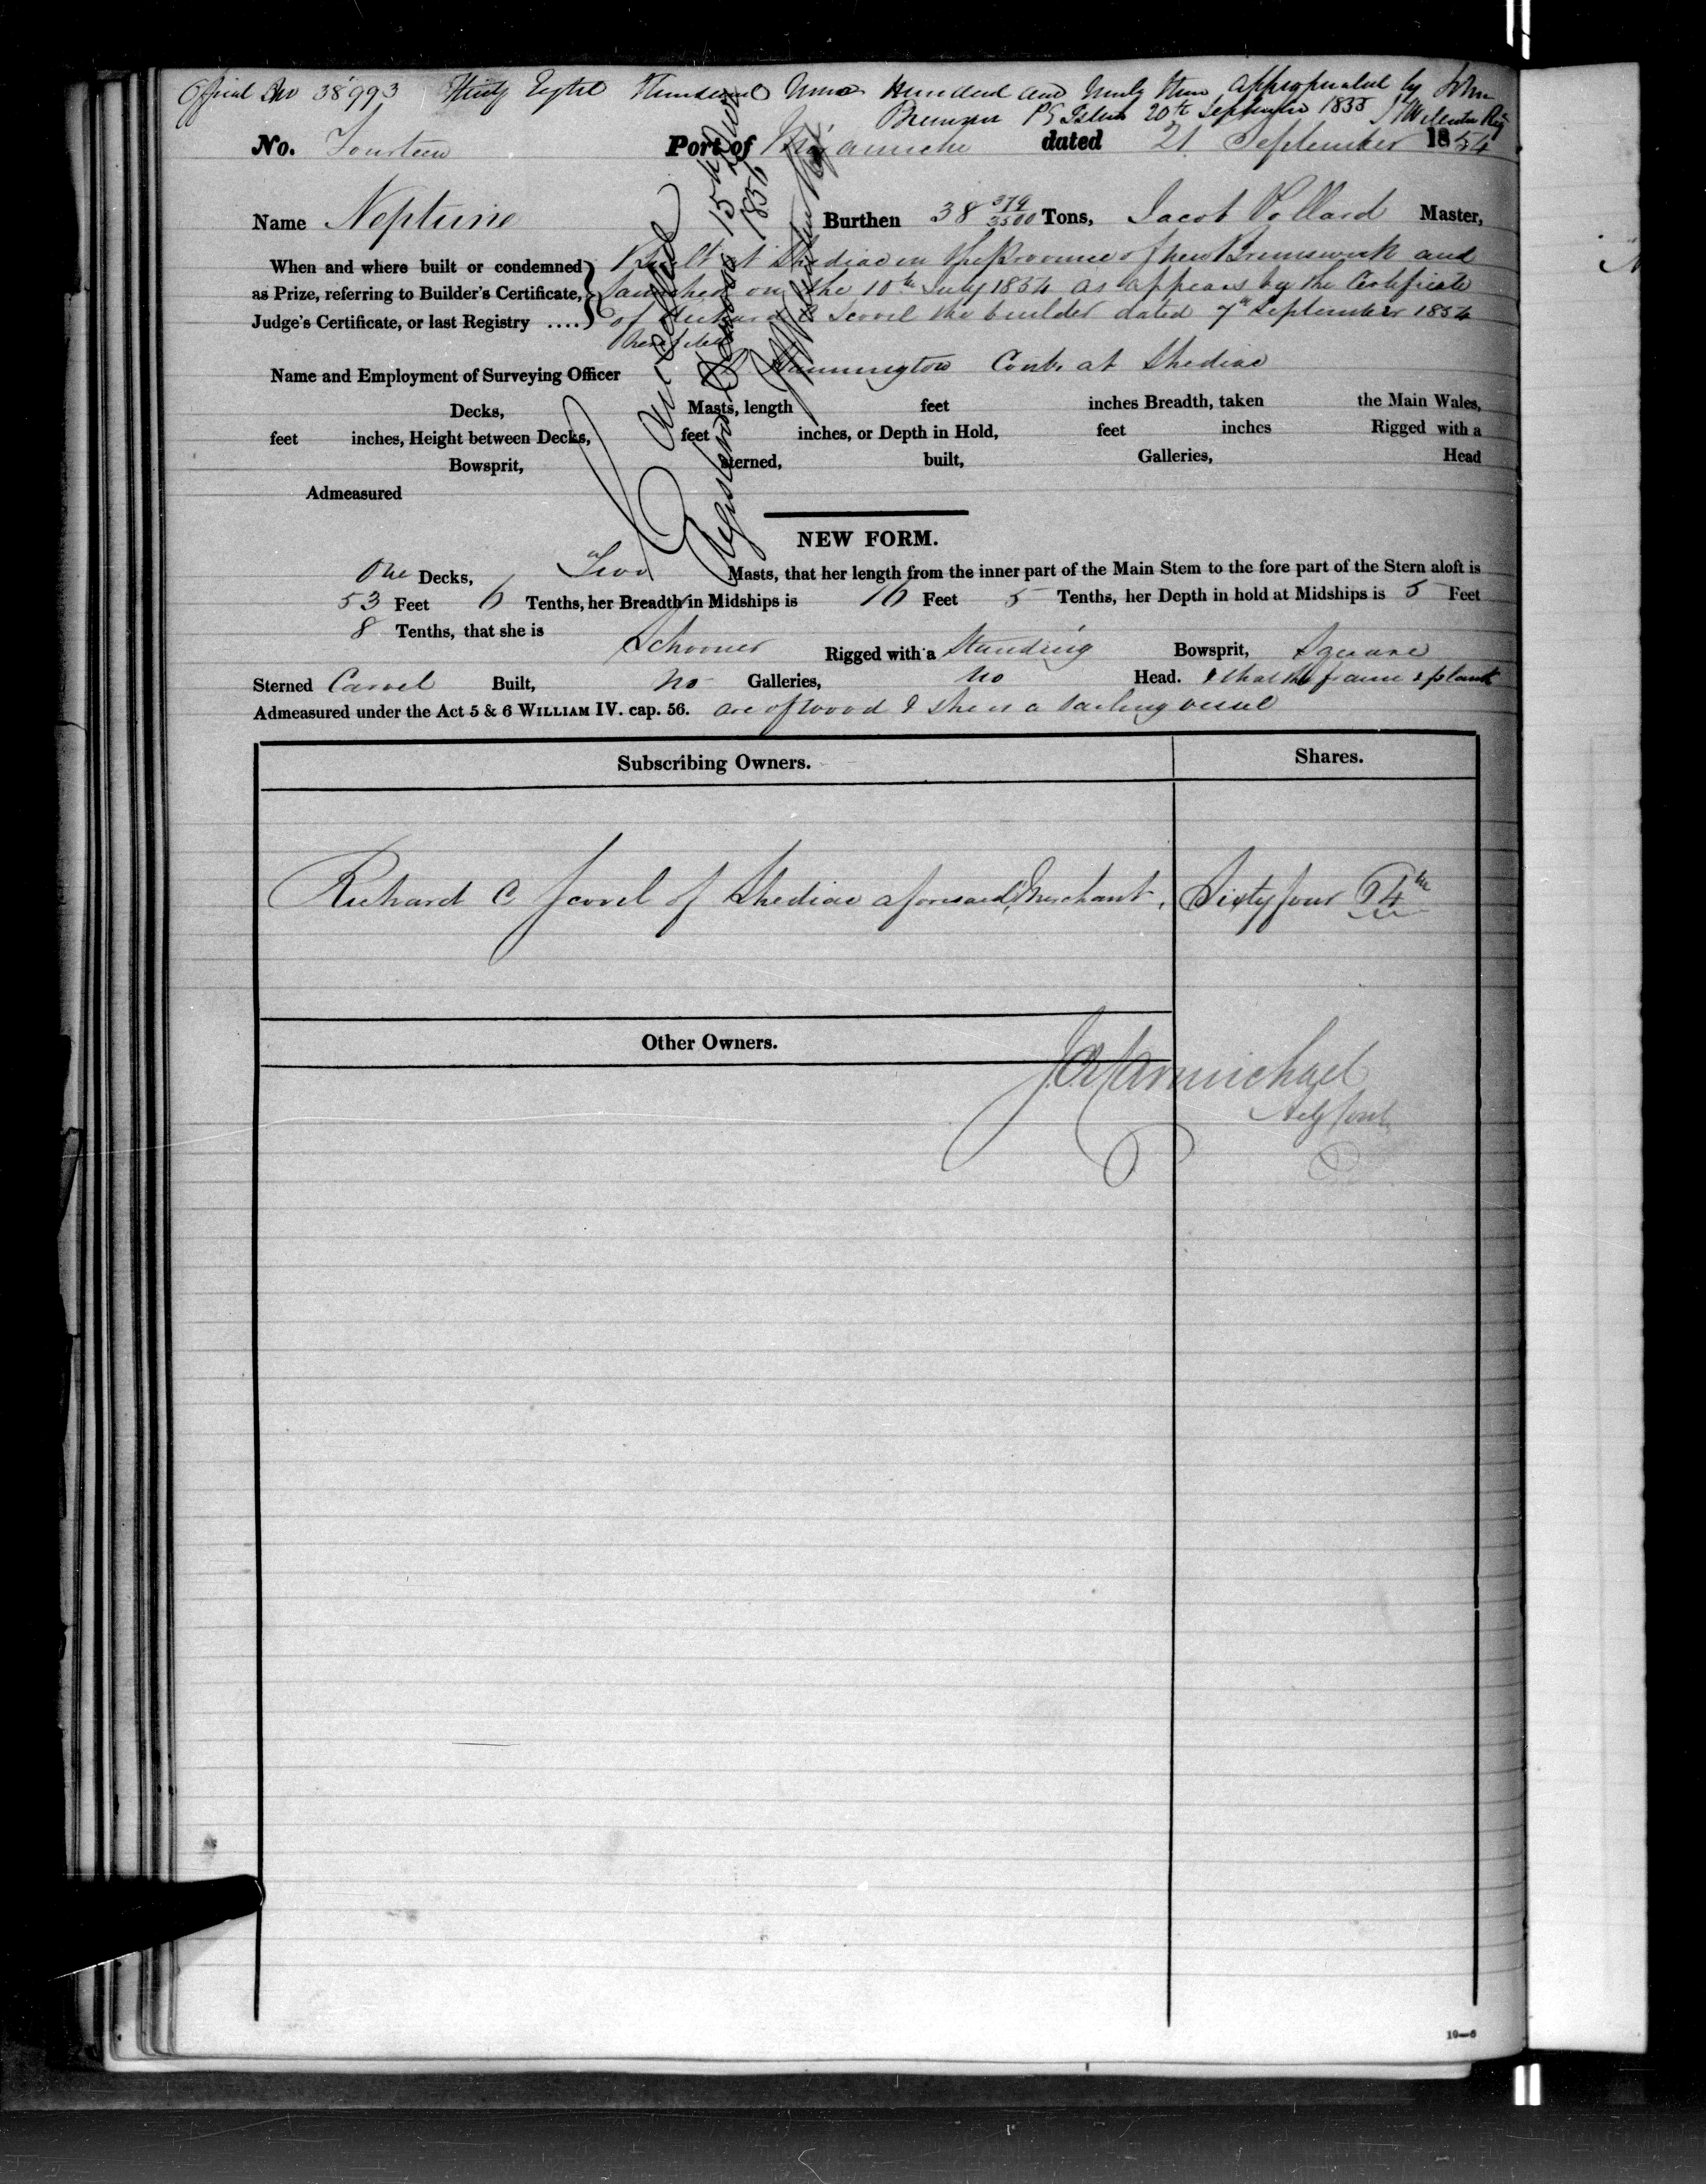 Official No 38993 Thirty Eight Thousand Nine Hundred and Ninety three appropriated by John
P E Island 20th September 1855
No. Fourteen Port of Miramichi dated 21 September 1854
Name Neptune Burthen 38 379/3500 Tons, Jacob Pollard Master,
When and where built or condemned Built at Shediac in the Province of New Brunswick and
as Prize, referring to Builder's Certificate, launched on the 10th July 1854 as appears by the Certificate
Judge's Certificate, or last Registry .... of Richard C Scovil the builder dated 7th September 1854
Name and Employment of Surveying Officer Hannington Contr. at Shediac
Decks, Masts, length feet inches Breadth, taken the Main Wales,
feet inches, Height between Decks, feet inches, or Depth in Hold, feet inches Rigged with a
Bowsprit, sterned, built, Galleries, Head
Admeasured
Cancelled
Registered De Novo 15th
1856
NEW FORM.
One Decks, Two Masts, that her length from the inner part of the Main Stem to the fore part of the Stern aloft is
53 Feet 6 Tenths, her Breadth in Midships is 16 Feet 5 Tenths, her Depth in hold at Midships is 5 Feet
8 Tenths, that she is Schooner Rigged with a Standing Bowsprit, Square
Sterned Carvel Built, No Galleries, No Head. & that the frame & plank
Admeasured under the Act 5 & 6 WILLIAM IV. cap. 56. are of wood & she is a sailing vessel
Subscribing Owners. Shares.
Richard C Scovil of Shediac aforesaid, Merchant, Sixty four 64th
Other Owners.
Carmichael
10—6